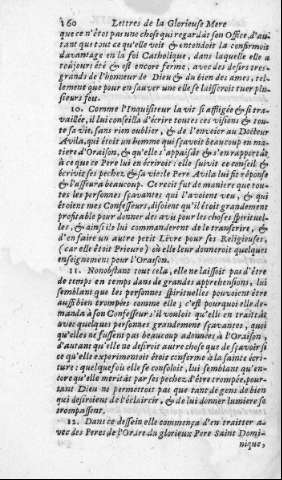 160 Lettres de la Glorieuse Mere
que ce n'êtoit pas une chose qui regardât son Office, d'au-
tant que tout ce qu'elle voit & entendoit la confirmoit
davantage en la foi Catholique, dans laquelle elle a
toûjours êté & est encore ferme, avec des desirs tres-
grands de l'honneur de Dieu & du bien des ames, tel-
lement que pour en sauver une elle se laisseroit tuer plu-
sieurs fois.
10. Comme l'Inquisiteur la vit si affligée & si tra-
vaillée, il lui conseilla d'écrire toutes ces visions & tou-
te sa vie, sans rien oublier, & de l'envoier au Docteur
Avila, qui êtoit un homme qui sçavoit beaucoup en ma-
tiere d'Oraison, & qu'elle s'appaisât & s'en rapportât
à ce que ce Pere lui en écriroit: elle suivit ce conseil &
écrivit ses pechez & sa vie: le Pere Avila lui fit réponse
& l'assura beaucoup. Ce recit fut de maniere que tou-
tes les personnes sçavantes qui l'avoient veu, & qui
étoient mes Confesseurs, disoient qu'il êtoit grandement
profitable pour donner des avis pour les choses spirituel-
les, & ainsi ils lui commanderent de le transcrire, &
d'en faire un autre petit Livre pour ses Religieuses,
(car elle êtoit Prieure) où elle leur donneroit quelques
enseignemens pour l'Oraison.
11. Nonobstant tout cela, elle ne laissoit pas d'être
de temps en temps dans de grandes apprehensions, lui
semblant que les personnes spirituelles pouvoient être
aussi bien trompées comme elle; c'est pourquoi elle de-
manda à son Confesseur, s'il vouloit qu'elle en traitât
avec quelques personnes grandement sçavantes, quoi
qu'elles ne fussent pas beaucoup adonnées à l'Oraison,
d'autant qu'elle ne desiroit autre chose que de sçavoir si
ce qu'elle experimentoit êtoit conforme à la sainte écri-
ture: quelquefois elle se consoloit, lui semblant qu'en-
core qu'elle meritât par ses pechez d'être trompée, pour-
tant Dieu ne permettoit pas que tant de gens de bien
qui desiroient de l'éclaircir, & de lui donner lumiere se
trompassent.
12. Dans ce dessein elle commença d'en traitter a-
vec des Peres de l'Ordre du glorieux Pere Saint Domi-
nique,